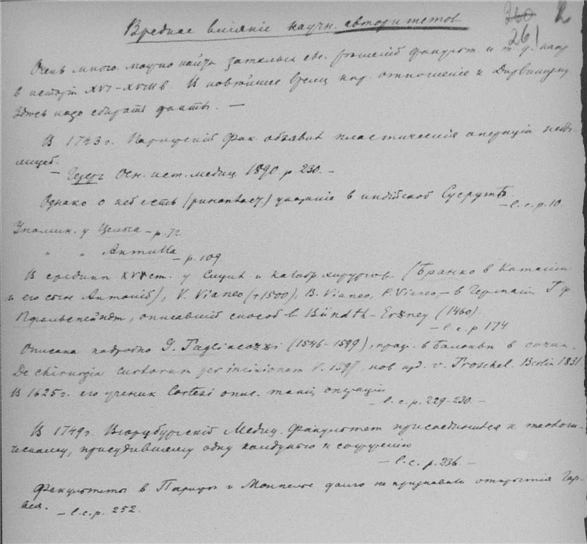 Вредное вліяніе научн. авторитетов
260
261
Очень много можно найти
в исторіи XVI-XVIII в. И новѣйшее время над. отношеніе к Дарвинизму
Здѣсь надо собирать факты. —
В 1743 г. Парижскій Фак. объявил пластическія операціи
— Гезер Осн. ист. медиц. 1890 p. 230. —
Однако о ней есть (ринопласт.) указаніе в индійской Сусрутѣ
— l. c. p. 10
Упомин. у Цельса — p. 72.
" " Антилла — p. 109
В средних XV ст. у Сициліи и Калабр. хирургов (Бранко в Катаніи
и его сын Антоній), V. Vianeo (†1500), B. Vianeo, P. Vianeo, — в Германіи Г. ф.
Пфольспейндт, описавшій способ в Bündth-Ertzney (1460).
— l. c. p 174
Описана подробно G. Tagliacozzi (1546-1599), проф. в Болоньи в сочин.
De chirurgia curtorum per incisionem V. 1597 нов. изд. v. Troschel. Berlin 1831
В 1625 г. его ученик Cortesi опис. такія операціи
— l. c. p. 229-230. —
В 1749 г. Вюрцбургскій Медиц. Факультет присоединился к теологи-
ческому, присудившему одну колдунью к сожженію
— l. c. p. 336. —
Факультеты в Парижѣ и Монпелье долго не признавали открытія Гар-
вея. — l. c. p. 252.